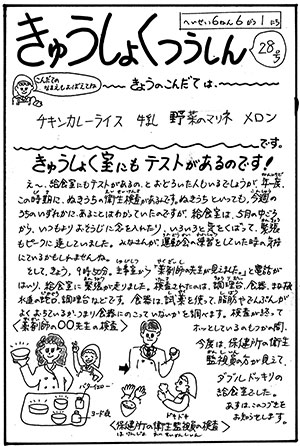 へいせい6ねん6がつ1にち
きゅうしょくつうしん
28号
こんだての
なまえもよくよんでね
きょうのこんだては、
チキンカレーライス 牛乳 野菜のマリネ メロン
です。
きゅうしょく室にもテストがあるのです!
え〜、給食室にもテストがあるの、とおどろいた人もいるでしょうが、年一度、
この時期に、ぬきうちの衛生検査があるんです。ぬきうちといっても、今週の
うちのいずれかにあることはわかっていたのですが、給食室は、5月の中ごろ
から、いつもよりおそうじに念を入れたり、いろいろと気をくばって、緊張
もピークに達していました。みなさんが、運動会の練習をしていた時の気持
ちにているかもしれませんね。
そして、きょう、9時50分。主事室から「薬剤師の先生が見えました。」と電話が
はいり、給食室に緊張が走りました。検査されたのは、調理台、食器、まな板
水道の
調理台などです。食器は、試薬を使って、脂肪やでんぷんが
よくおちているか、つまり食器にのこっていないかを調べます。検査が終って
ホッとしているのもつかの間、
今度は、保健所の衛生
監視員の方が見えて、
ダブルドッキリの
給食室でした。
あすは、このつづきを
お知らせします。
<薬剤師の〇〇先生の検査>
バターイエロー
ヨード液
ドキドキ
<保健所の衛生監視員の検査>